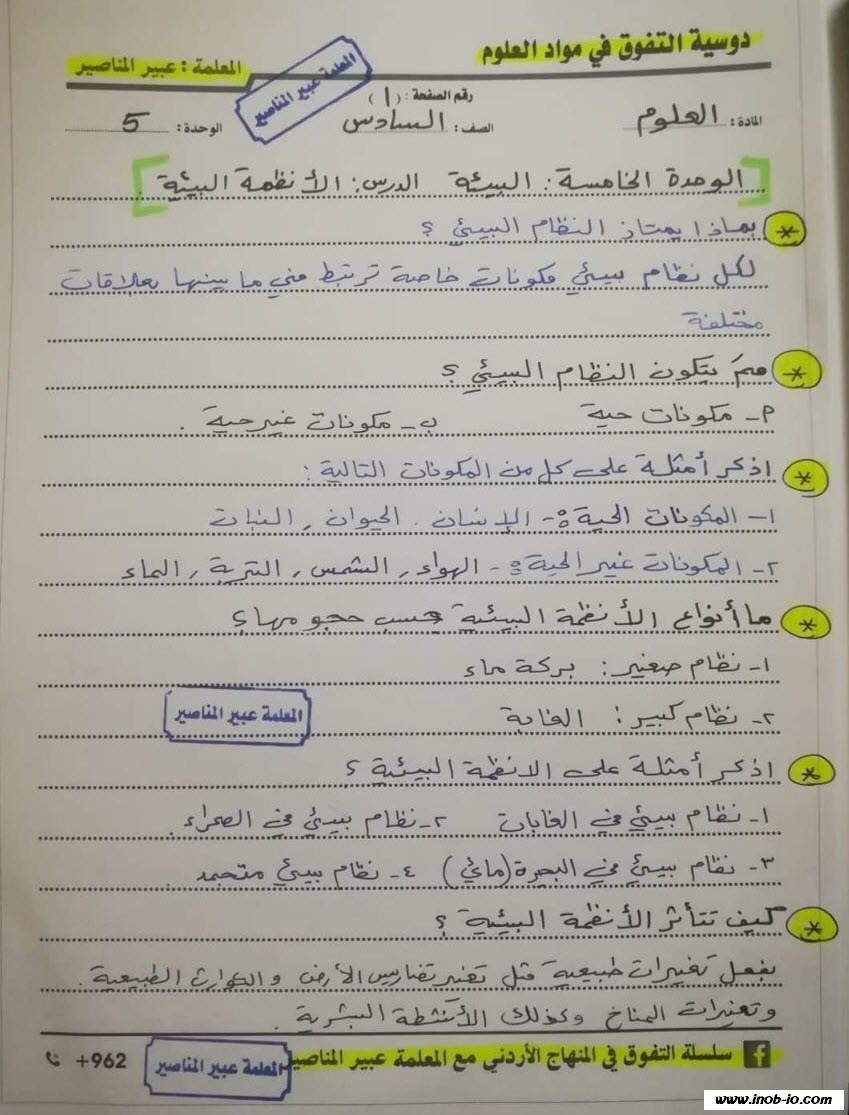 دوسية التفوق في مواد العلوم
المعلمة : عبير المناصير
المعلمة عبير المناصير
رقم الصفحة : (١)
المادة: العلوم الصف: السادس الوحدة: 5
الوحدة الخامسة : البيئة الدرس: الأنظمة البيئية .
* بماذا يمتاز النظام البيئي ؟
لكل نظام بيئي مكونات خاصة ترتبط في ما بينها بعلاقات
مختلفة
* ممَ يتكون النظام البيئي ؟
أ- مكونات حية ب- مكونات غير حية .
* اذكر أمثلة على كل من المكونات التالية :
١- المكونات الحية :- الإنسان , الحيوان , النبات
٢- المكونات غير الحية :- الهواء , الشمس , التربة , الماء
* ما أنواع الأنظمة البيئية حسب حجومها ؟
١- نظام صغير : بركة ماء
٢- نظام كبير : الغابة
المعلمة عبير المناصير
* اذكر أمثلة على الانظمة البيئية ؟
١- نظام بيئي في الغابات ٢- نظام بيئي في الصحراء .
٣- نظام بيئي في البحيرة (مائي) ٤- نظام بيئي متجمد .
* كيف تتأثر الأنظمة البيئية ؟
بفعل تغيرات طبيعية مثل تغير تضاريس الأرض والكوارث الطبيعية .
وتغيرات المناخ وكذلك الأنشطة البشرية .
سلسلة التفوق في المنهاج الأردني مع المعلمة عبير المناصير
المعلمة عبير المناصير
+962
www.inob-io.com